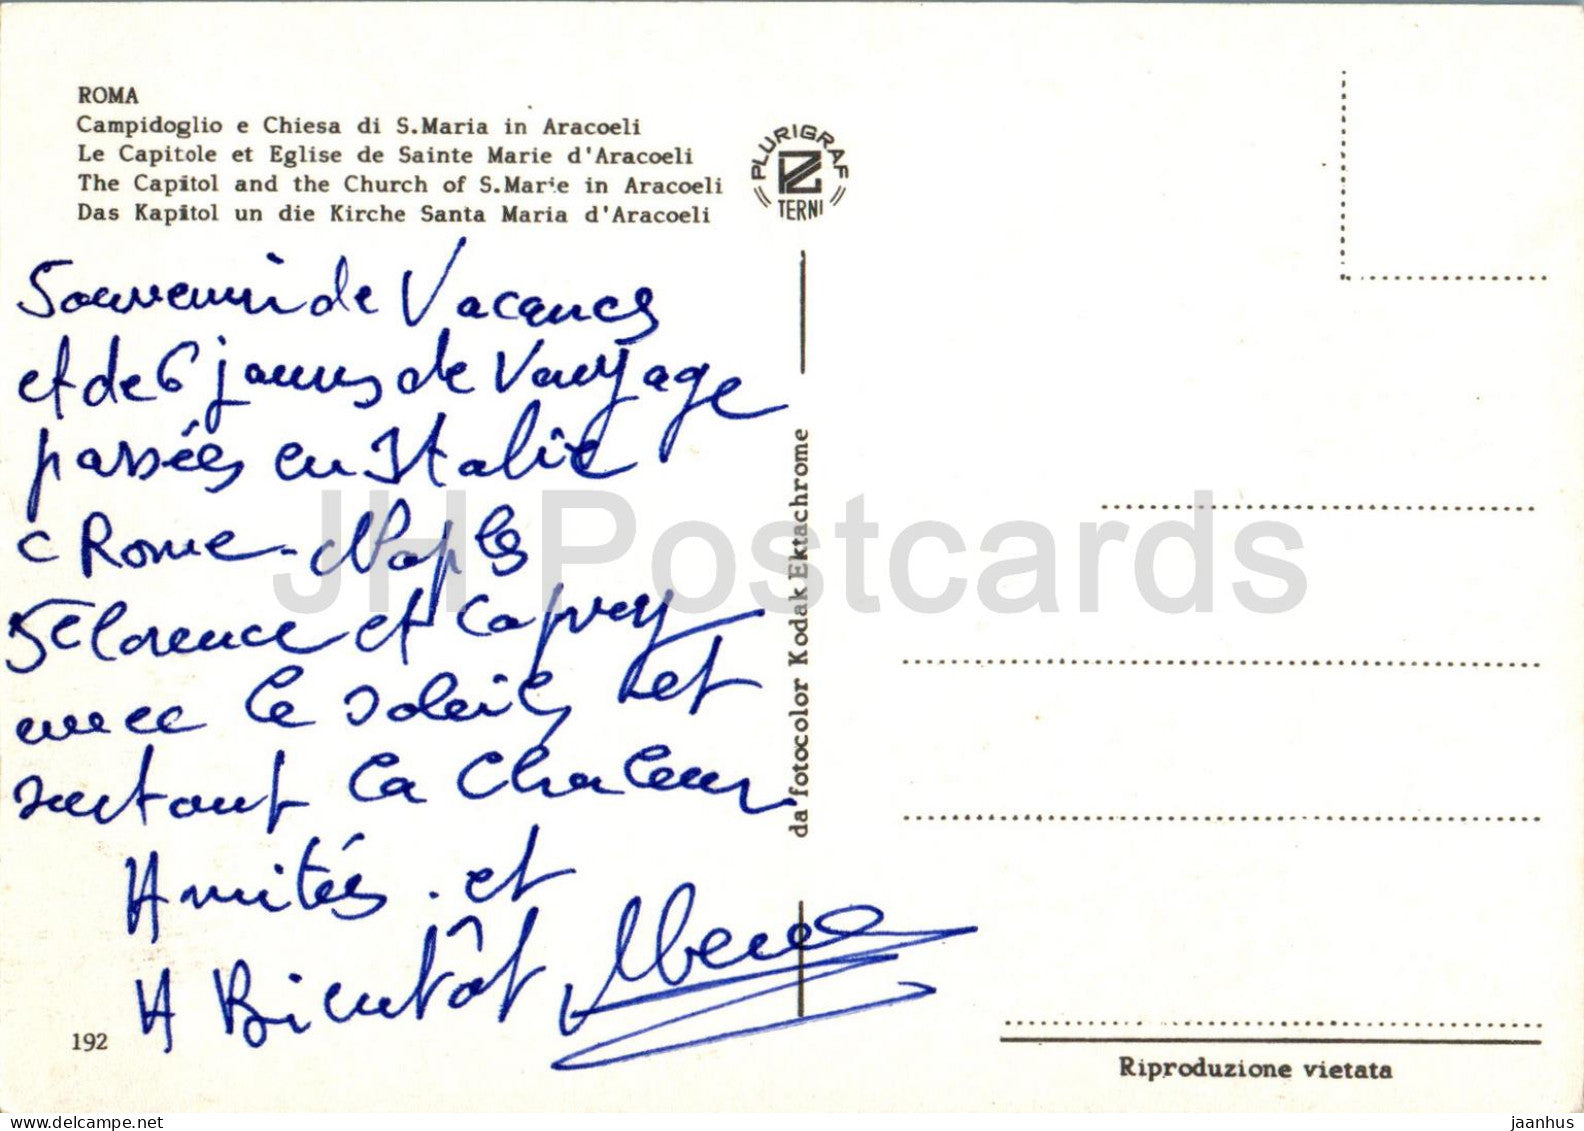 ROMA
Campidoglio e Chiesa di S.Maria in Aracoeli
Le Capitole et Eglise de Sainte Marie d'Aracoeli
The Capitol and the Church of S.Marie in Aracoeli
Das Kapitol un die Kirche Santa Maria d'Aracoeli
PLURIGRAF
TERNI
Souvenir de Vacances
et de 6 jours de Vouyage
passées en Italie
Rome - Naples
Florence et Caprey
avec le soleil et
surtout la Chaleur
Amitiés et
A Bientôt
192
da fotocolor Kodak Ektachrome
Riproduzione vietata
JH Postcards
www.delcampe.net
jaanhus